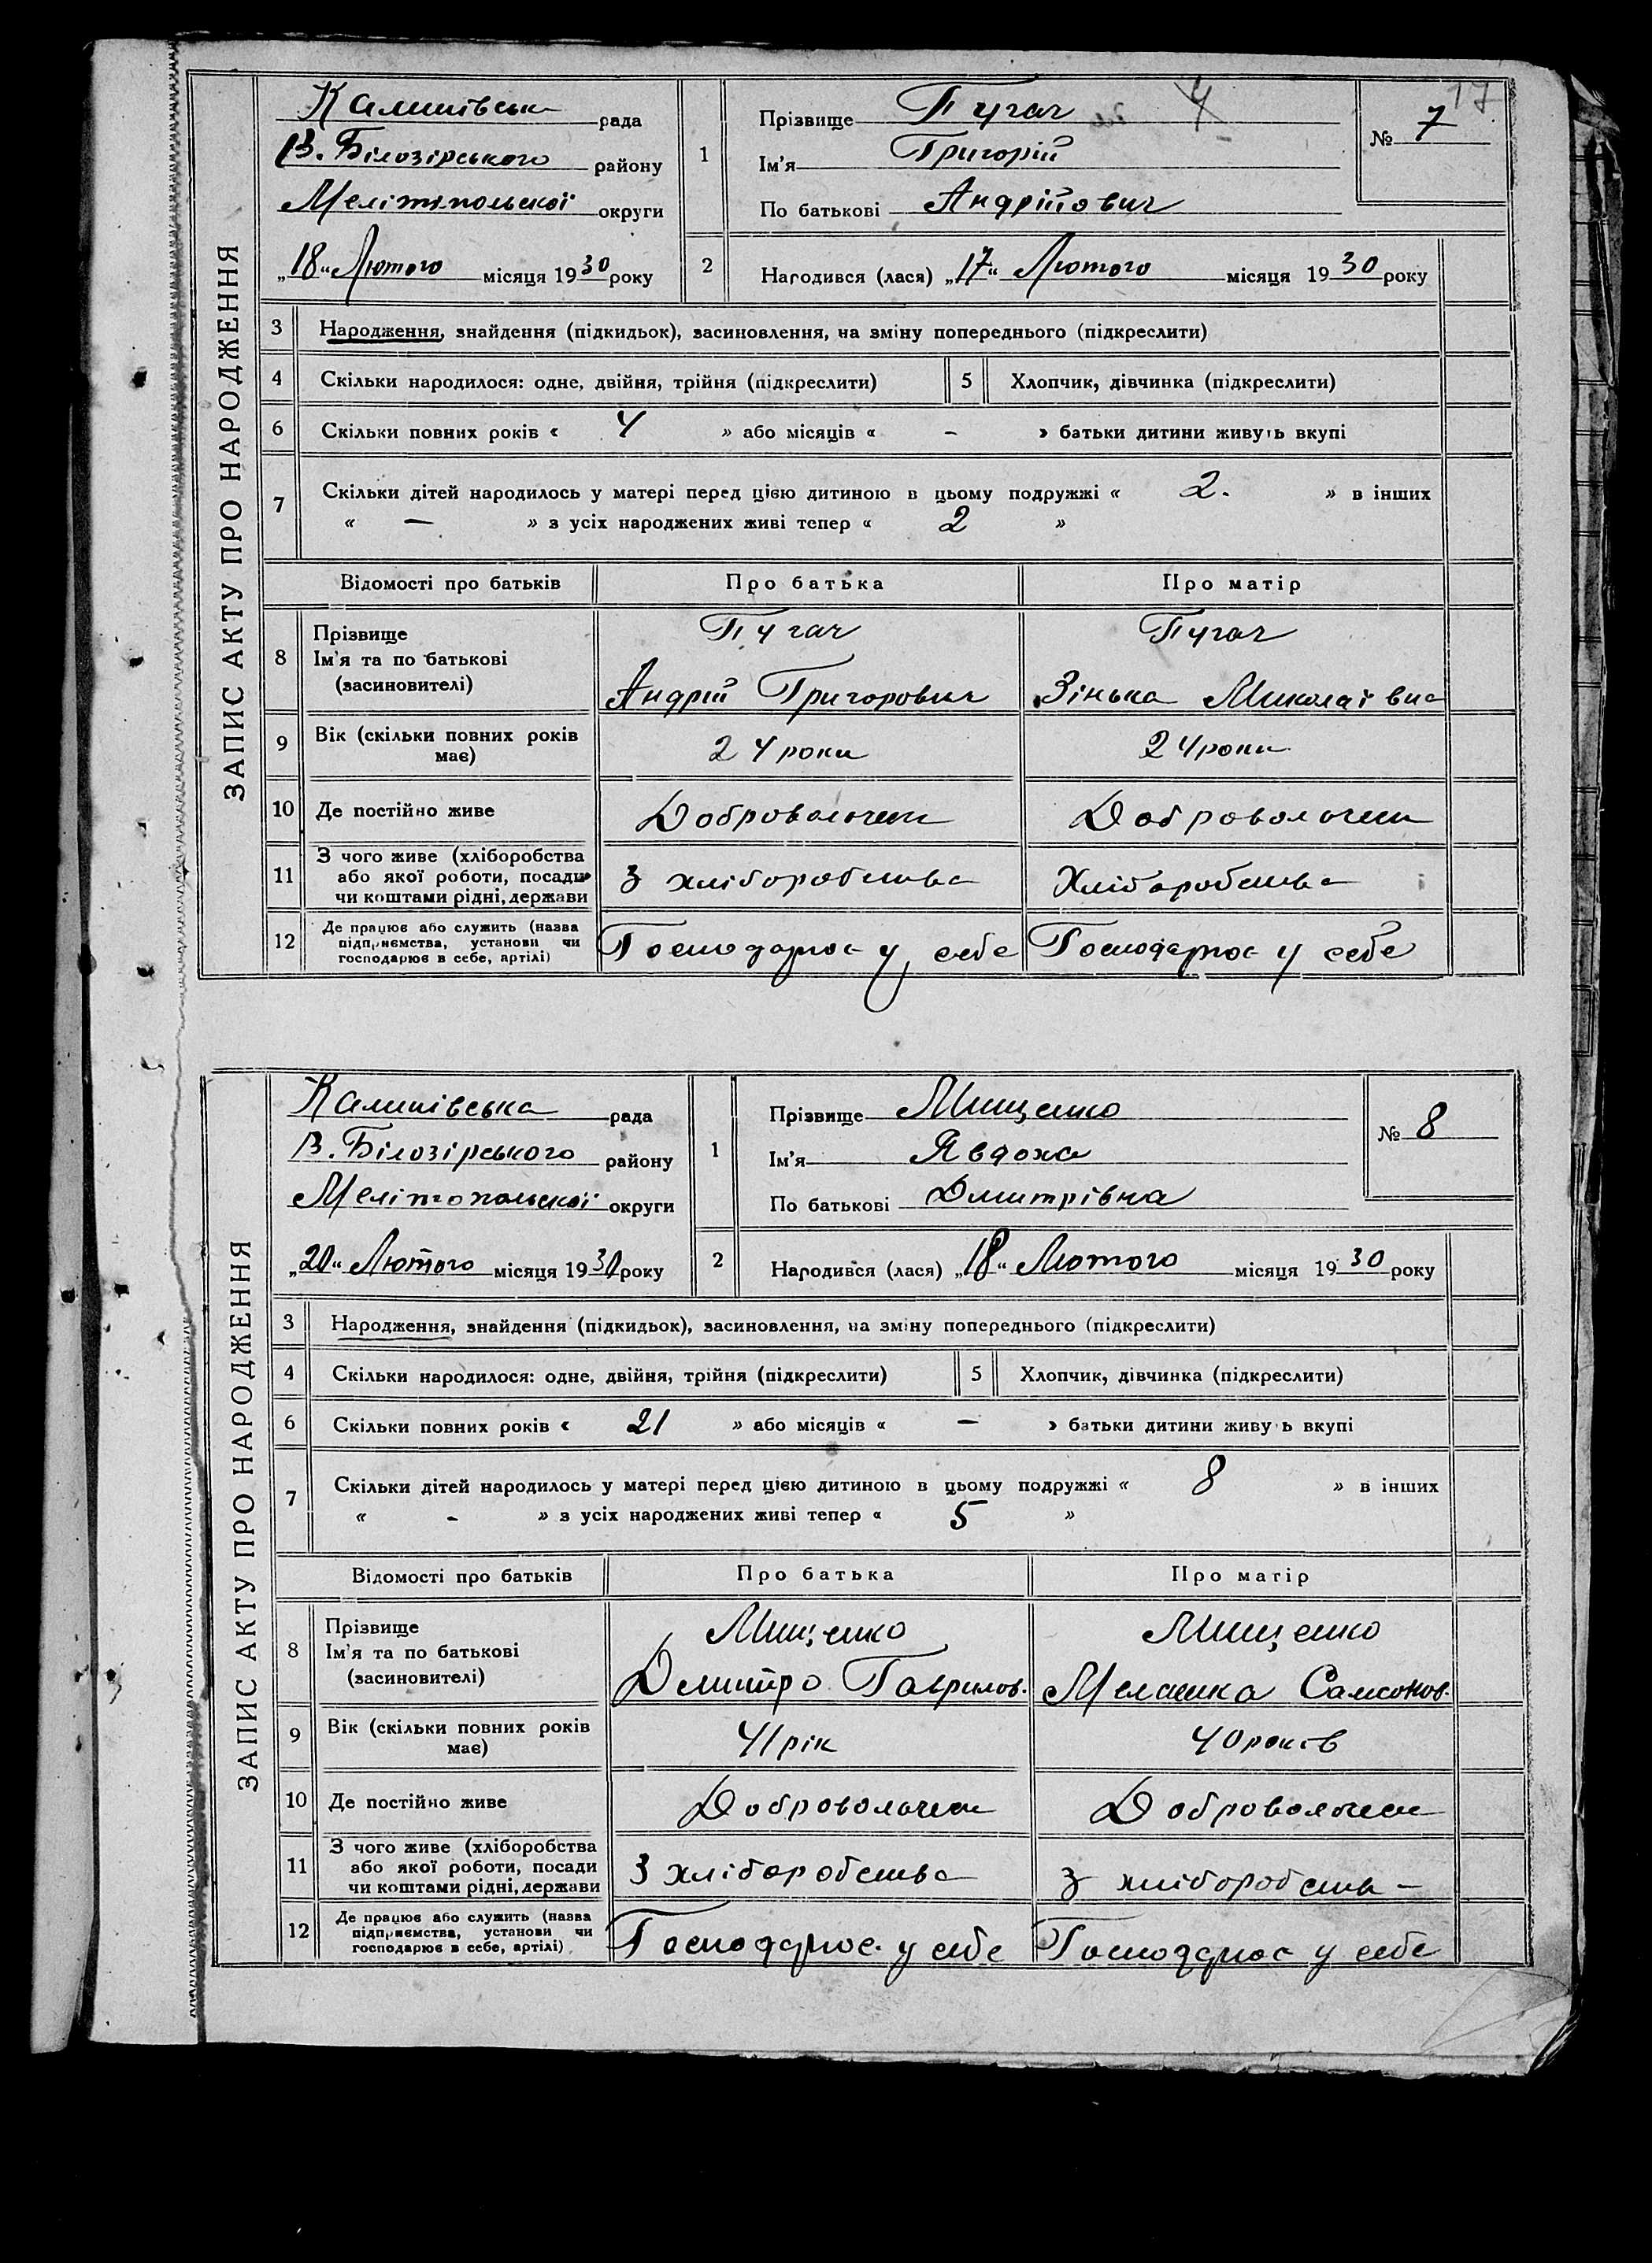 17
Калинівськ рада
В. Білозірського району
Мелітопольскої округи
„18“ Лютого місяця 1930 року
1
Прізвище Пугач
Ім'я Григорій
По батькові Андрійович
№ 7
2
Народився (лася) „17“ Лютого місяця 1930 року
ЗАПИС АКТУ ПРО НАРОДЖЕННЯ
3 Народження, знайдення (підкидьок), засиновлення, на зміну попереднього (підкреслити)
4 Скільки народилося: одне, двійня, трійня (підкреслити) 5 Хлопчик, дівчинка (підкреслити)
6 Скільки повних років « 4 » або місяців « - » батьки дитини живуть вкупі
7 Скільки дітей народилось у матері перед цією дитиною в цьому подружжі « 2. » в інших
« — » з усіх народжених живі тепер « 2 »
Відомості про батьків Про батька Про матір
8 Прізвище Пугач Пугач
Ім'я та по батькові
(засиновителі) Андрій Григорович Зінька Миколаївна
9 Вік (скільки повних років має) 24 роки 24 роки
10 Де постійно живе
11 З чого живе (хліборобства
або якої роботи, посади З хліборобства Хліборобства
чи коштами рідні, держави
12 Де працює або служить (назва
підприємства, установи чи
господарює в себе, артілі) Господарює у себе Господарює у себе
Калинівська рада
В. Білозірського району
Мелітопольскої округи
„20“ Лютого місяця 1930 року
1
Прізвище Мищенко
Ім'я Явдоха
По батькові Дмитрівна
№ 8
2
Народився (лася) „18“ Лютого місяця 1930 року
ЗАПИС АКТУ ПРО НАРОДЖЕННЯ
3 Народження, знайдення (підкидьок), засиновлення, на зміну попереднього (підкреслити)
4 Скільки народилося: одне, двійня, трійня (підкреслити) 5 Хлопчик, дівчинка (підкреслити)
6 Скільки повних років « 21 » або місяців « — » батьки дитини живуть вкупі
7 Скільки дітей народилось у матері перед цією дитиною в цьому подружжі « 8 » в інших
« - » з усіх народжених живі тепер « 5 »
Відомості про батьків Про батька Про матір
8 Прізвище Мищенко Мищенко
Ім'я та по батькові
(засиновителі) Дмитро Гаврилов. Мелашка Самсонов.
9 Вік (скільки повних років має) 41 рік 40 років
10 Де постійно живе
11 З чого живе (хліборобства
або якої роботи, посади З хліборобства З хліборобств
чи коштами рідні, держави
12 Де працює або служить (назва
підприємства, установи чи
господарює в себе, артілі) Господарює у себе Господарює у себе